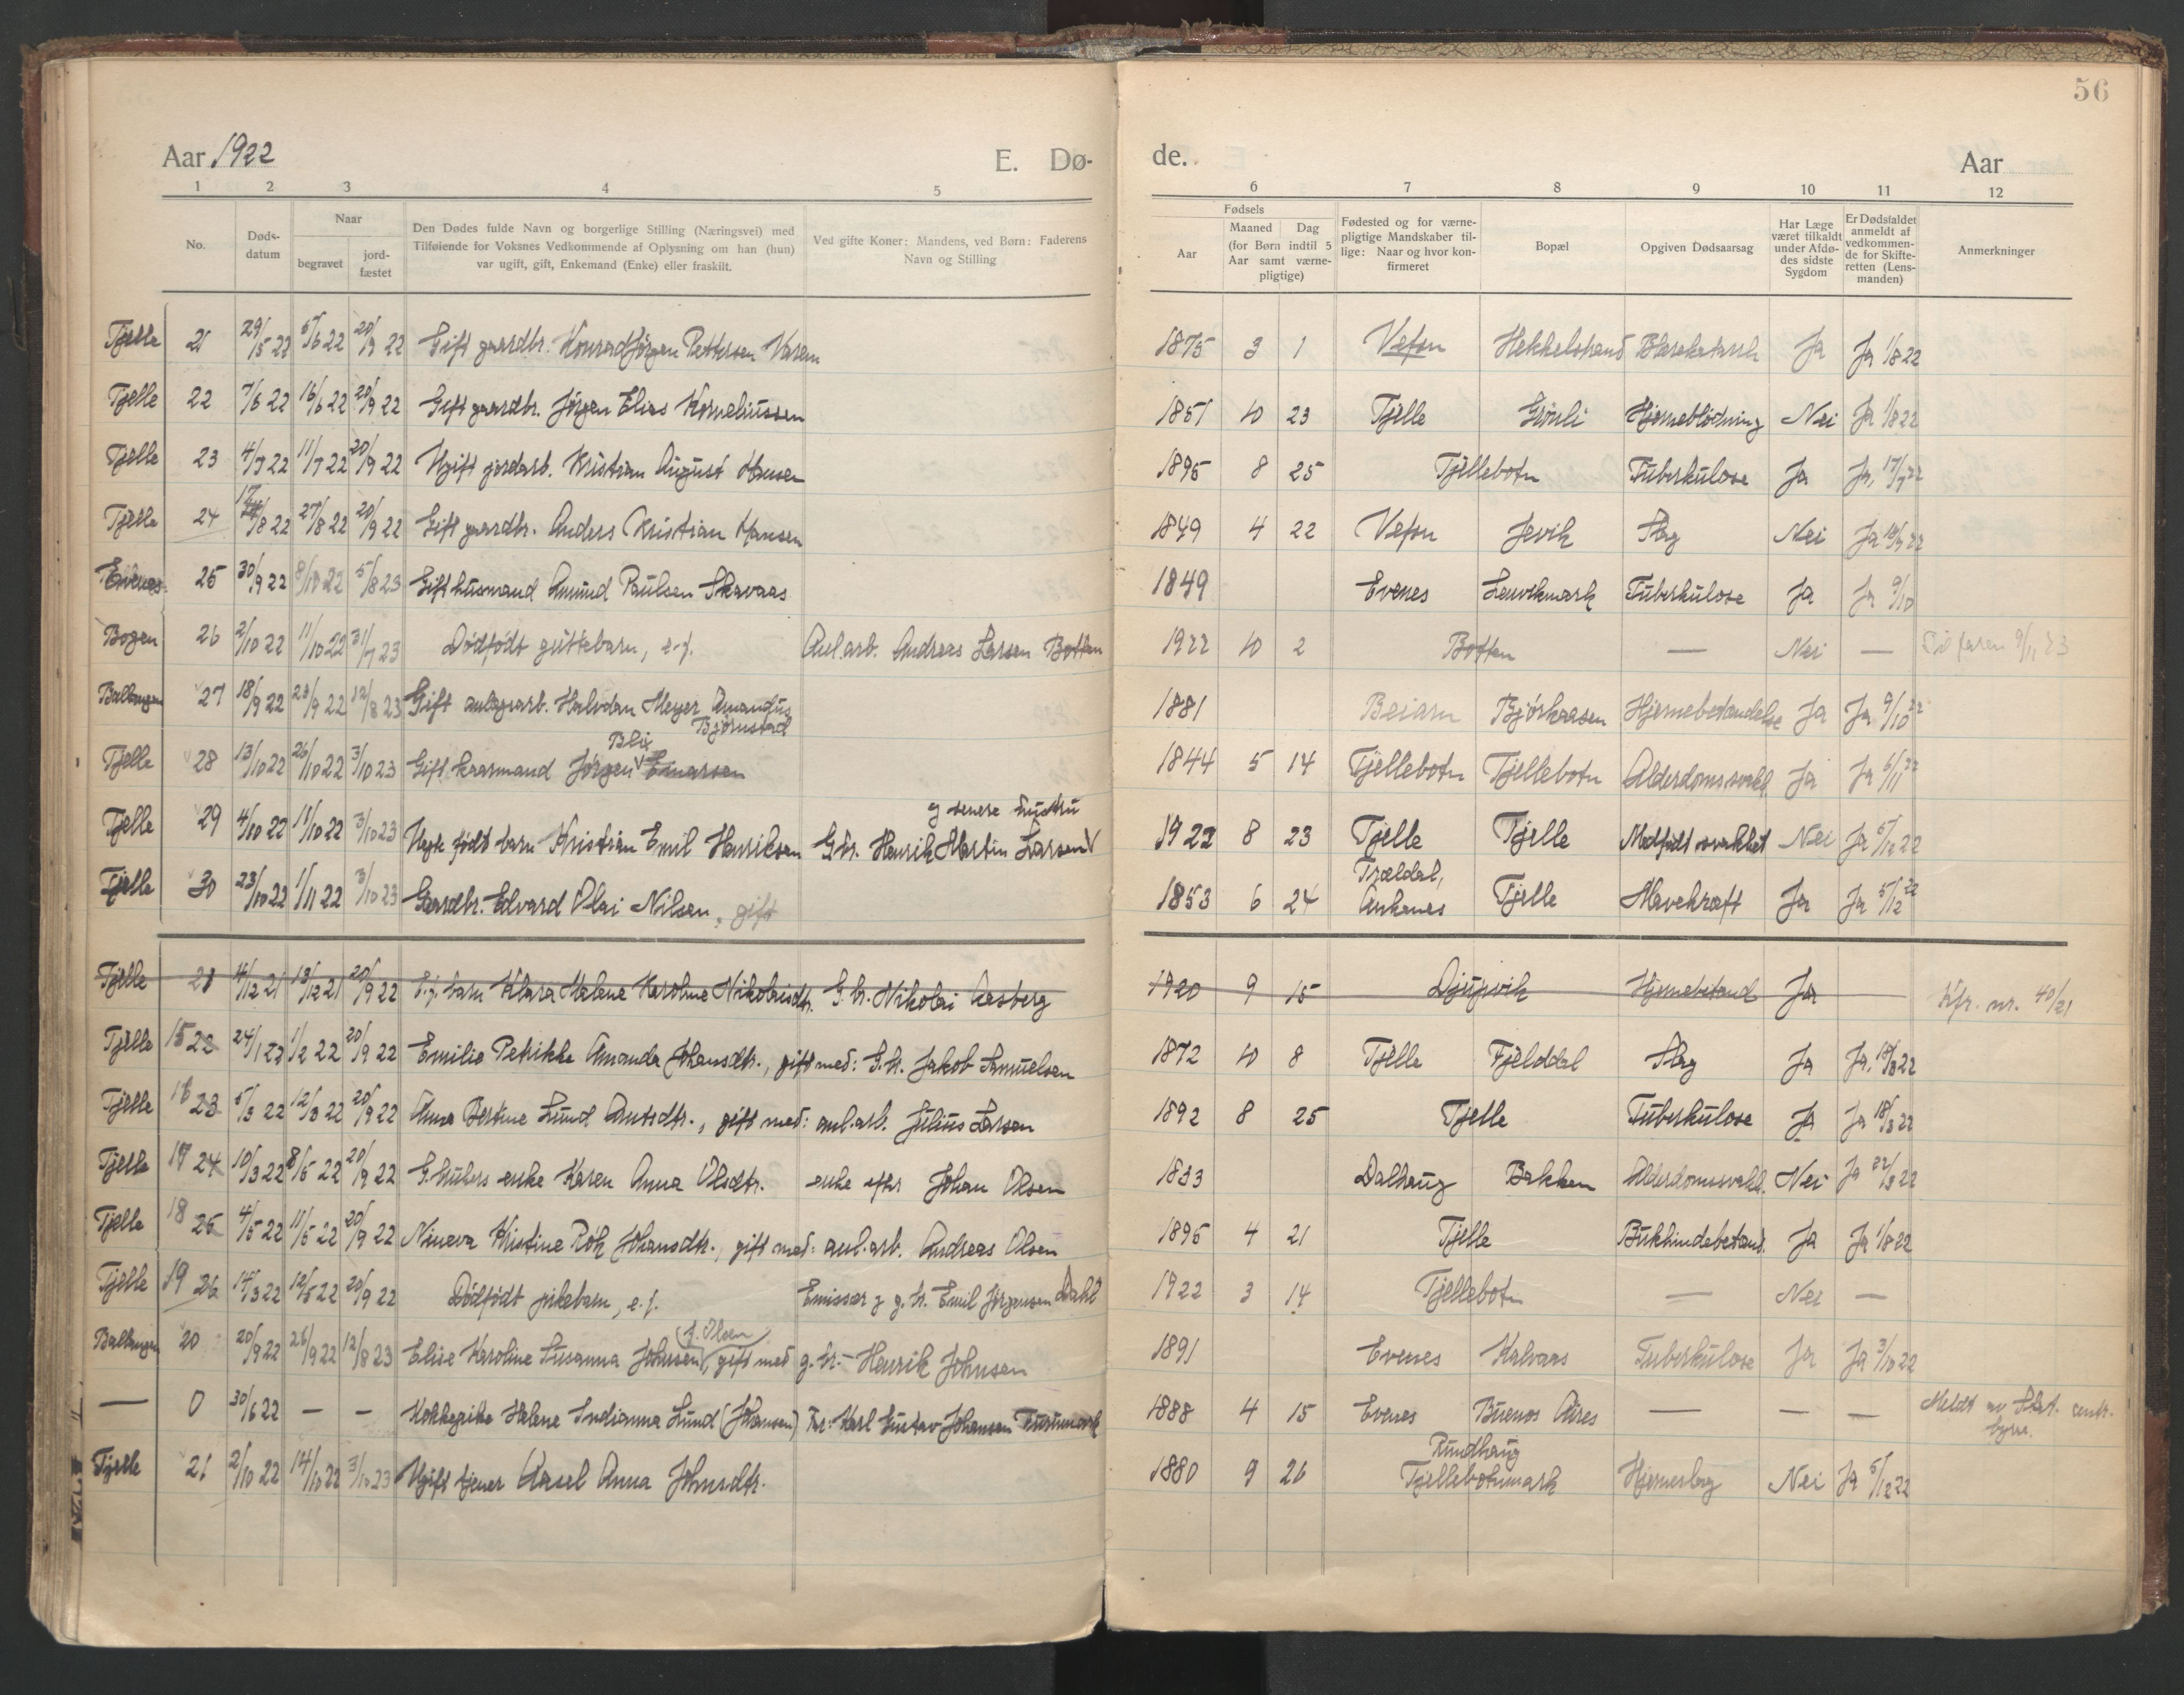 56
Aar 1922
E. Dø-
de.
Aar
1 2 3 4 5
6 7 8 9 10 11 12
No.
Døds-
datum
Naar
begravet
jord-
fæstet
Den Dødes fulde Navn og borgerlige Stilling (Næringsvei) med
Tilføiende for Voksnes Vedkommende af Oplysning om han (hun)
var ugift, gift, Enkemand (Enke) eller fraskilt.
Ved gifte Koner: Mandens, ved Børn: Faderens
Navn og Stilling
Fødsels
Aar
Maaned Dag
(for Børn indtil 5
Aar samt værne-
pligtige)
Fødested og for værne-
pligtige Mandskaber til-
lige: Naar og hvor kon-
firmeret
Bopæl
Opgiven Dødsaarsag
Har Læge
været tilkaldt
under Afdø-
des sidste
Sygdom
Er Dødsfaldet
anmeldt af
vedkommen-
de for Skifte-
retten (Lens-
manden)
Anmerkninger
Tjelle 21 29/5 22 5/6 22 20/9 22 Gift gaardbr. Konrad Jørgen Pettersen 1875 3 1 Vefsn Blærekatarrh Ja Ja 1/8 22
Tjelle 22 7/6 22 16/6 22 20/9 22 Gift gaardbr. Jørgen Elias Korneliussen 1851 10 23 Tjelle Grønli Hjerneblødning Nei Ja 1/8 22
Tjelle 23 4/7 22 11/7 22 20/9 22 Ugift jordarb. Kristian August Hansen 1895 8 25 Tjellebotn Tuberkulose Ja Ja, 17/7 22
Tjelle 24 17/8 22 27/8 22 20/9 22 Gift gaardbr. Anders Kristian Hansen 1849 4 22 Vefsn Jevik Slag Nei Ja
Evenes 25 30/9 22 8/10 22 5/8 23 Gift husmand Amund Paulsen Skavaas 1849 Evenes Lenvikmark Tuberkulose Ja Ja 9/10
Bogen 26 2/10 22 11/10 22 31/7 23 Dødfødt guttebarn, e.f. Anl.arb. Andreas Larsen Botten 1922 10 2 Botten — Nei — 9/11 23
Ballangen 27 18/9 22 23/9 22 12/8 23 Gift anlægsarb. Halvdan Meyer Amandus
Bjørnstad 1881 Beiarn Bjørkaasen Hjernebetændelse Ja Ja 9/10 22
Blix
Tjelle 28 13/10 22 26/10 22 3/10 23 Gift kaarmand Jørgen Enarsen 1844 5 14 Tjellebotn Tjellebotn Alderdomssvakh. Ja Ja 6/11 22
g senere
Tjelle 29 4/10 22 11/10 22 3/10 23 født barn Kristian Emil Henriksen G.br. Henrik Martin Larsen 1922 8 23 Tjelle Tjelle Medfødt svakhet Nei Ja 5/12 22
Trældal,
Tjelle 30 23/10 22 1/11 22 3/10 23 Gaardbr. Edvard Olai Nilsen, gift 1853 6 24 Ankenes Tjelle Mavekræft Ja Ja 5/12 22
Tjelle 21 4/12 21 13/12 21 20/9 22 E.f. barn Klara Malene Karoline Nikolaisdtr. G.br. Nikolai Aasberg 1920 9 15 Djupvik Hjernebetænd Ja — Kfr. nr. 40/21
Tjelle 15 22 24/1 22 1/2 22 20/9 22 Emilie Petrikke Amanda Johansdtr., gift med: G.br. Jakob Samuelsen 1872 10 8 Tjelle Fjelddal Slag Ja Ja, 18/3 22
Tjelle 16 23 5/3 22 12/3 22 20/9 22 Anna Bertine Lund Antsdtr., gift med: anl.arb. Julius Larsen 1892 8 25 Tjelle Tuberkulose Ja Ja 18/3 22
Tjelle 17 24 10/3 22 8/5 22 20/9 22 G.brukers enke Karen Anna Olsdtr. enke efter Johan Olsen 1833 Dalhaug Bakken Alderdomssvakh. Nei Ja 22/3 22
Tjelle 18 25 4/5 22 11/5 22 20/9 22 Nineva Kristine Røk Johansdtr., gift med: anl.arb. Andreas Olsen 1895 4 21 Tjelle Bukhindebetænd. Ja Ja 1/8 22
Tjelle 19 26 14/3 22 12/5 22 20/9 22 Dødfødt pikebarn, e.f. Emissær g g.br. Emil Jørgensen Dahl 1922 3 14 Tjellebotn — Nei —
(f. Olsen)
Ballangen 20 20/9 22 26/9 22 12/8 23 Elise Karoline Susanna Johnsen, gift med g.br. Henrik Johnsen 1891 Evenes Kalvaas Tuberkulose Ja Ja 3/10 22
— 0 30/6 22 — — Kokkepike Helene Indianna Lund (Johansen) Karl Gustav Johansen 1888 4 15 Evenes Buenos Aires — — — Meldt av Stat. centr.
byraa.
Rundhaug
Tjelle 21 2/10 22 14/10 22 3/10 23 Ugift tjener Aasel Anna Johnsdtr. 1880 9 26 Tjellebotnmark Hjerneslag Nei Ja 5/12 22